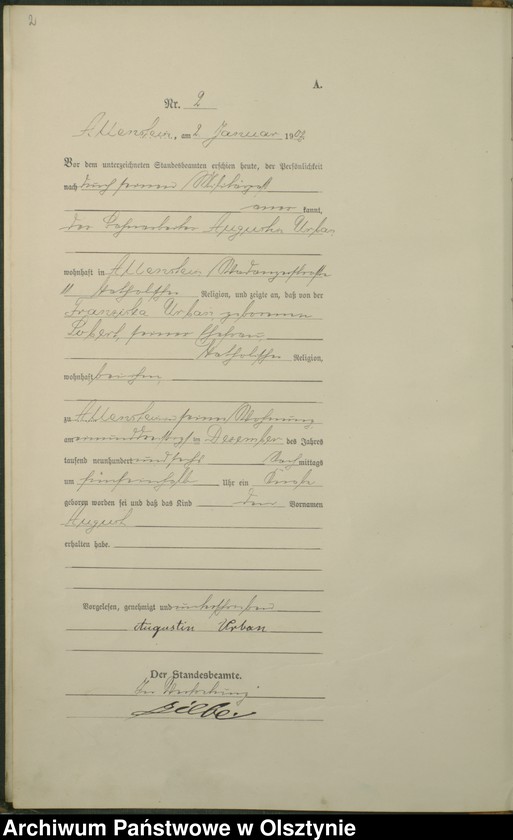 2
A.
Nr. 2
Allenstein, am 2 Januar 1907
Vor dem unterzeichneten Standesbeamten erschien heute, der Persönlichkeit
nach durch seinen
aner kannt,
der Augustin Urban
wohnhaft in Allenstein
11 katholischer Religion, und zeigte an, daß von der
Franziska Urban geborenen
seiner Ehefrau,
katholischer Religion,
wohnhaft bei ihm,
zu Allenstein in seiner Wohnung
am einunddreißigsten Dezember des Jahres
tausend neunhundert und sechs Nach mittags
um Uhr ein Knabe
geboren worden sei und daß das Kind den Vornamen
August
erhalten habe.
Vorgelesen, genehmigt und unterschrieben
Augustin Urban
Der Standesbeamte.
In Vertretung
Archiwum Państwowe w Olsztynie